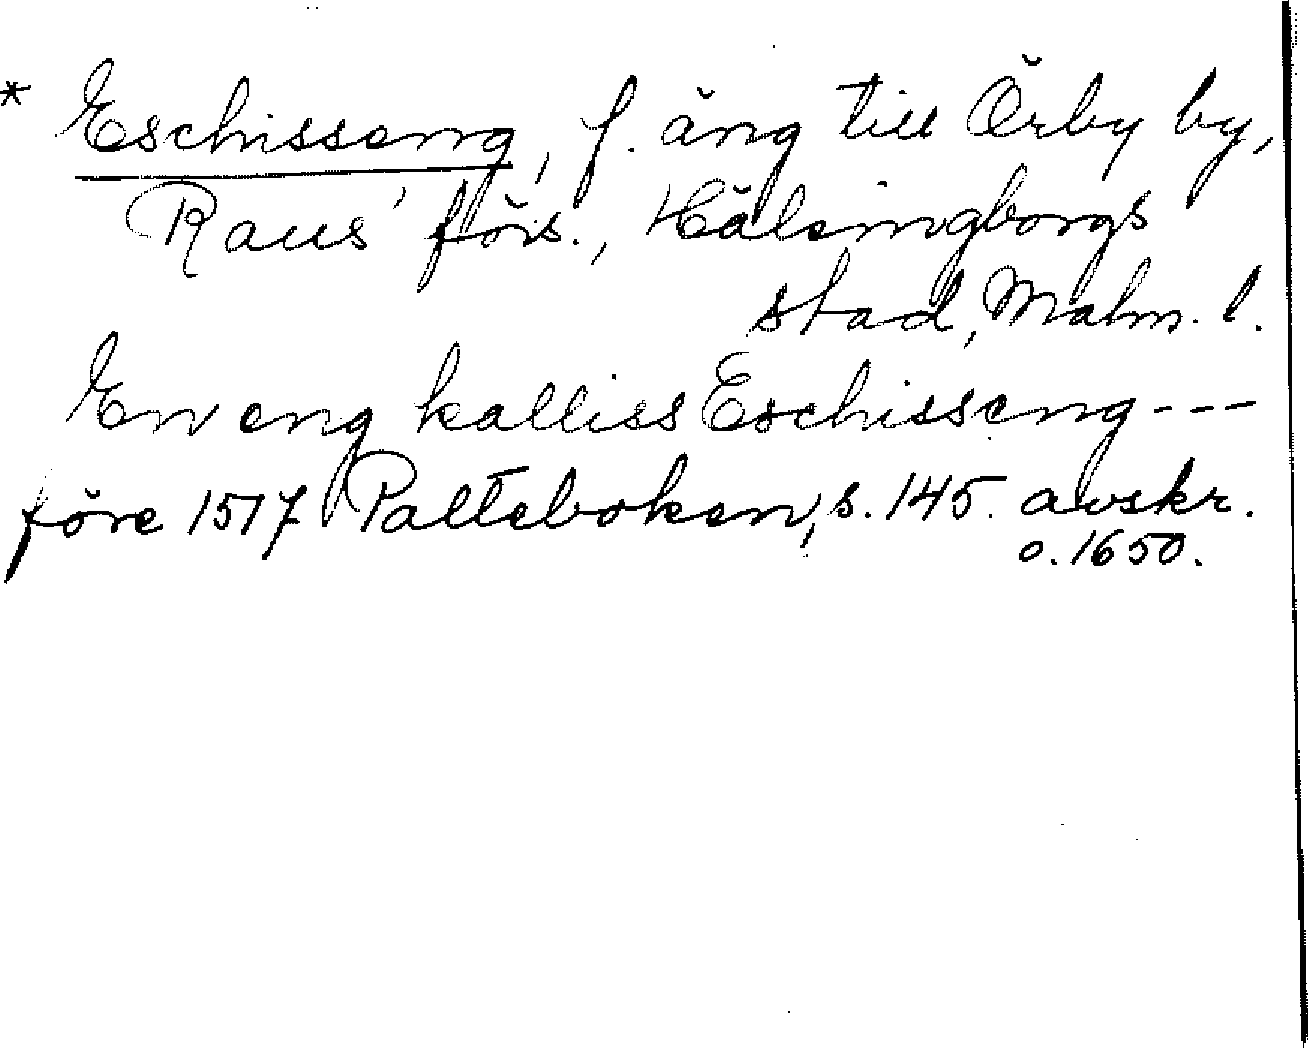 * Eschisseng, f. äng till Örby by,
Raus' förs., Hälsingborgs
stad, Malm. l.
En eng kalliss Eschisseng ---
före 1517 Palteboken, s. 145. avskr.
o. 1650.